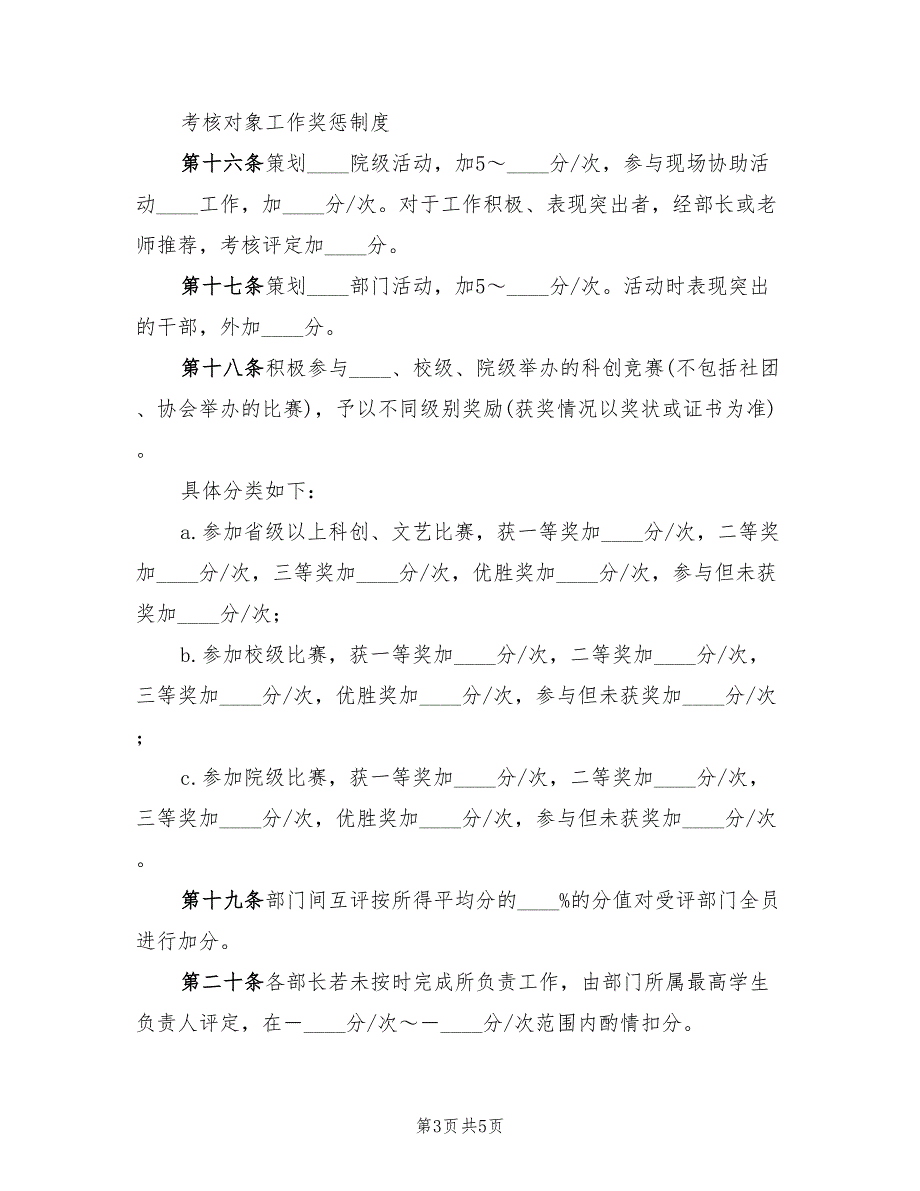 考核对象工作奖惩制度
第十六条策划____院级活动，加5～____分/次，参与现场协助活
动____工作，加____分/次。对于工作积极、表现突出者，经部长或老
师推荐，考核评定加____分。
第十七条策划____部门活动，加5～____分/次。活动时表现突出
的干部，外加____分。
第十八条积极参与____、校级、院级举办的科创竞赛(不包括社团
、协会举办的比赛)，予以不同级别奖励(获奖情况以奖状或证书为准)
。
具体分类如下：
a.参加省级以上科创、文艺比赛，获一等奖加____分/次，二等奖
加____分/次，三等奖加____分/次，优胜奖加____分/次，参与但未获
奖加____分/次；
b.参加校级比赛，获一等奖加____分/次，二等奖加____分/次，
三等奖加____分/次，优胜奖加____分/次，参与但未获奖加____分/次
；
c.参加院级比赛，获一等奖加____分/次，二等奖加____分/次，
三等奖加____分/次，优胜奖加____分/次，参与但未获奖加____分/次
。
第十九条部门间互评按所得平均分的____%的分值对受评部门全员
进行加分。
第二十条各部长若未按时完成所负责工作，由部门所属最高学生
负责人评定，在－____分/次～－____分/次范围内酌情扣分。
第3页共5页